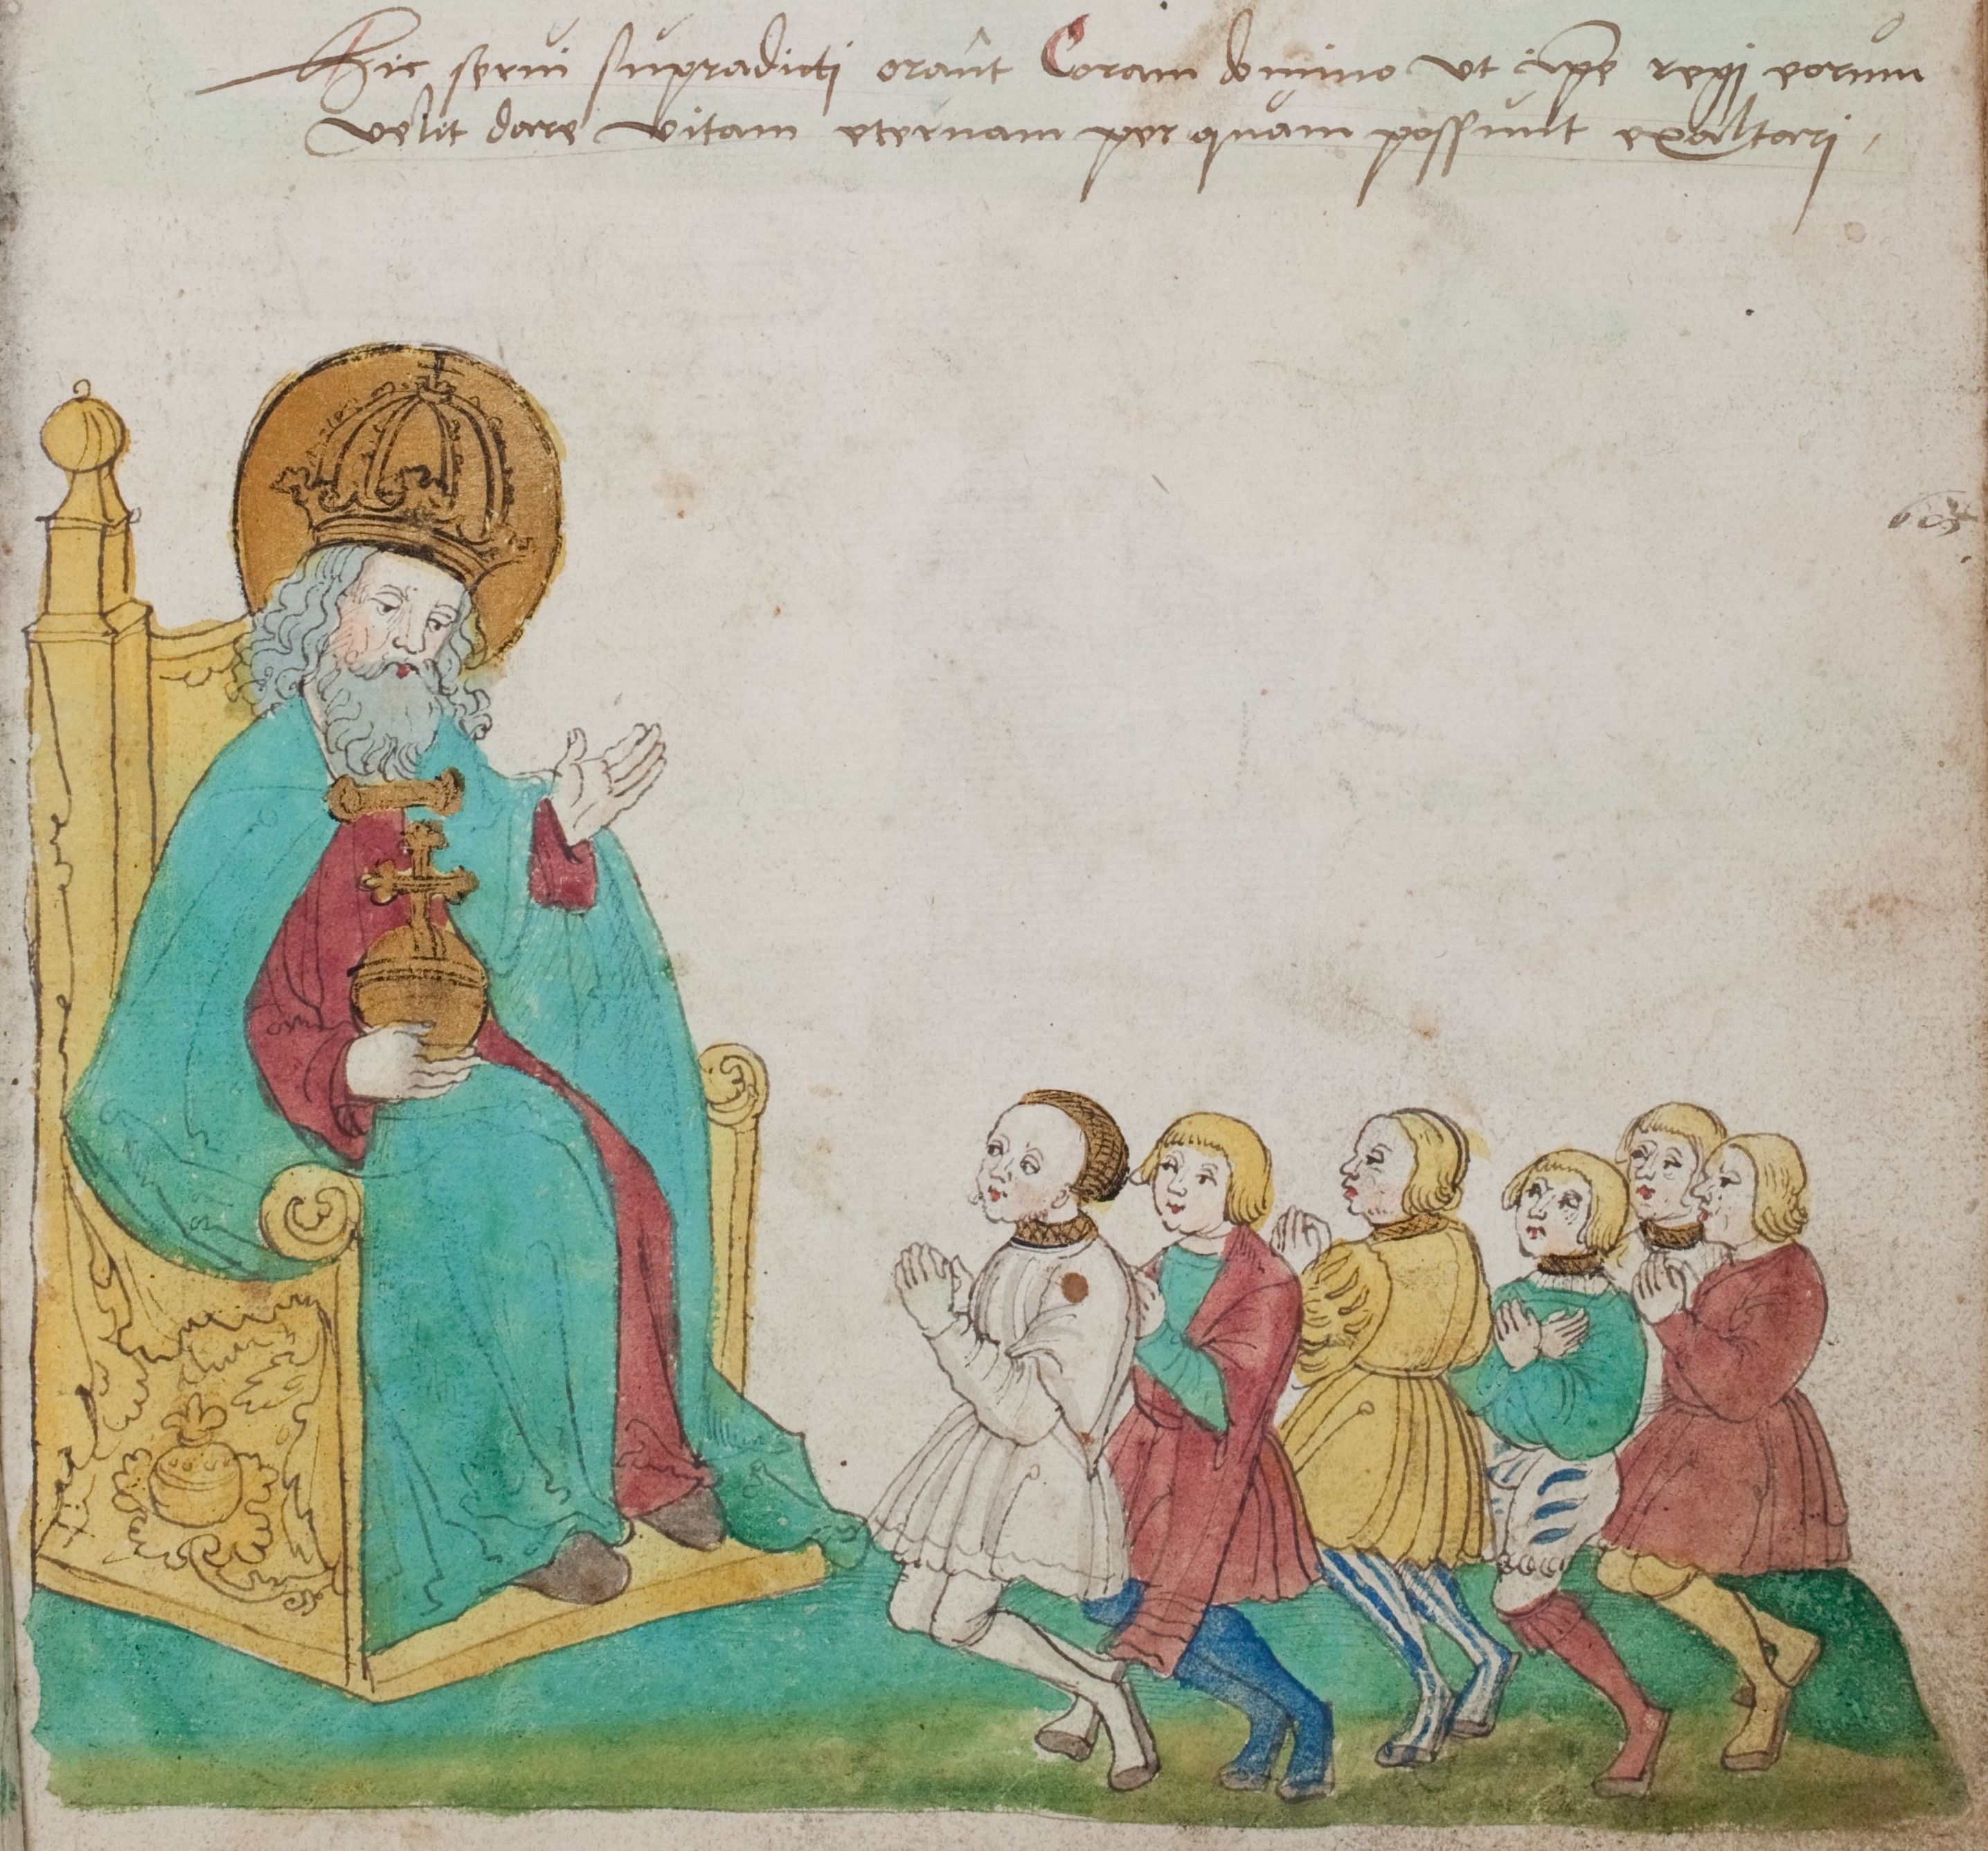 Hic serui supradicti orant Coram domino vt ipse regi eorum
velit dare vitam eternam per quam possunt exaltari